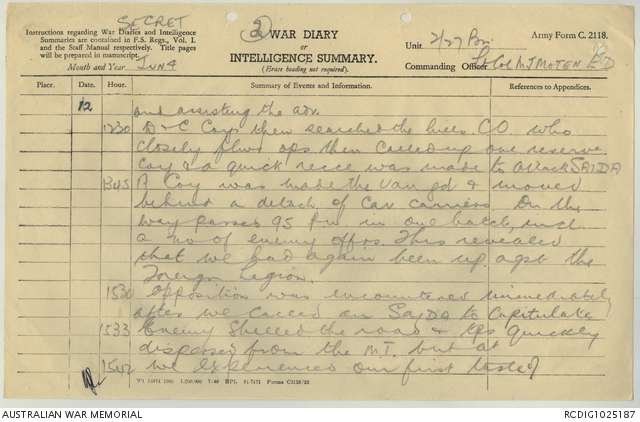 SECRET
Instructions regarding War Diaries and Intelligence
Summaries are contained in F.S. Regs., Vol. I.
and the Staff Manual respectively. Title pages
will be prepared in manuscript.
Month and Year Jun 4
(2)
WAR DIARY
or
INTELLIGENCE SUMMARY.
(Erase heading not required).
Army Form C. 2118.
Unit 2/27 Bn.
Commanding Officer Lt Col M J MOTEN E D
Place. Date. Hour. Summary of Events and Information. References to Appendices.
12 and assisting the adv.
1230 D & C Coys then searched the hills. CO who
closely flwd ops then called up one reserve
Coy & a quick recce was made to attack SAIDA
1345 B Coy was made the van gd & moved
behind a detach of Cav carriers. On the
way passed 95 PW in one batch, incl
a no of enemy offrs. This revealed
that we had again been up agst the
Foreign Legion.
1530 Opposition was encountered immediately
after we called on SAIDA to capitulate
1533 Enemy shelled the road & tps quickly
dispersed from the M.T. but at
1542 we experienced our first taste of
AUSTRALIAN WAR MEMORIAL
RCDIG1025187